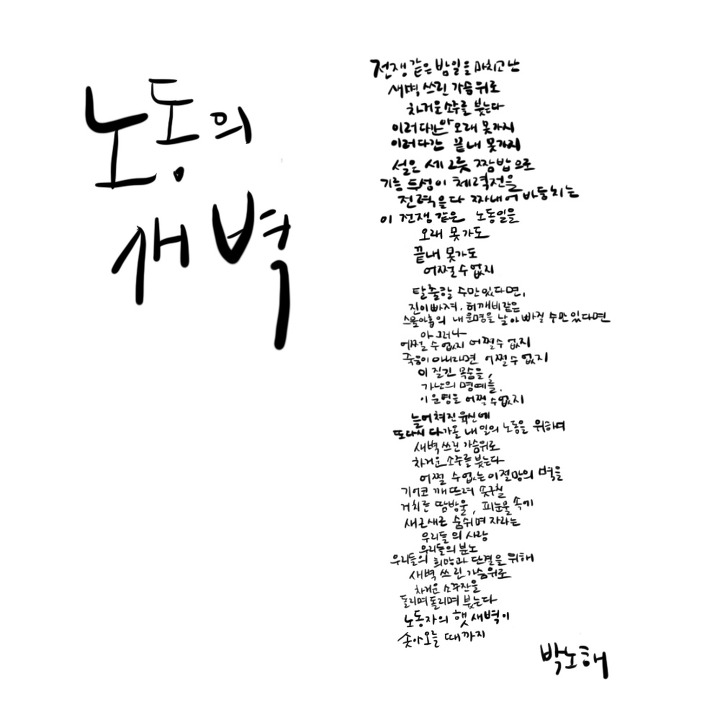 노동의
새벽
전쟁 같은 밤일을 마치고 난
새벽 쓰린 가슴 위로
차거운 소주를 붓는다
이러다간 오래 못가지
이러다간 끝내 못가지
설은 세 그릇 짬밥으로
기름 투성이 체력전을
전력을 다 짜내어 바둥치는
이 전쟁 같은 노동일을
오래 못가도
끝내 못가도
어쩔 수 없지
탈출할 수만 있다면,
진이 빠져, 허깨비같은
스물아홉의 내 운명을 날아 빠질 수만 있다면
아 그러나
어쩔 수 없지 어쩔 수 없지
죽음이 아니라면 어쩔 수 없지
이 질긴 목숨을,
가난의 멍에를,
이 운명을 어쩔 수 없지
늘어쳐진 육신에
또다시 다가올 내일의 노동을 위하여
새벽 쓰린 가슴 위로
차거운 소주를 붓는다
어쩔 수 없는 이 절망의 벽을
기어코 깨뜨려 솟구칠
거치른 땀방울, 피눈물 속에
새근새근 숨쉬며 자라는
우리들의 사랑
우리들의 분노
우리들의 희망과 단결을 위해
새벽 쓰린 가슴 위로
차거운 소주잔을
돌리며 돌리며 붓는다
노동자의 햇새벽이
솟아오를 때까지
박노해